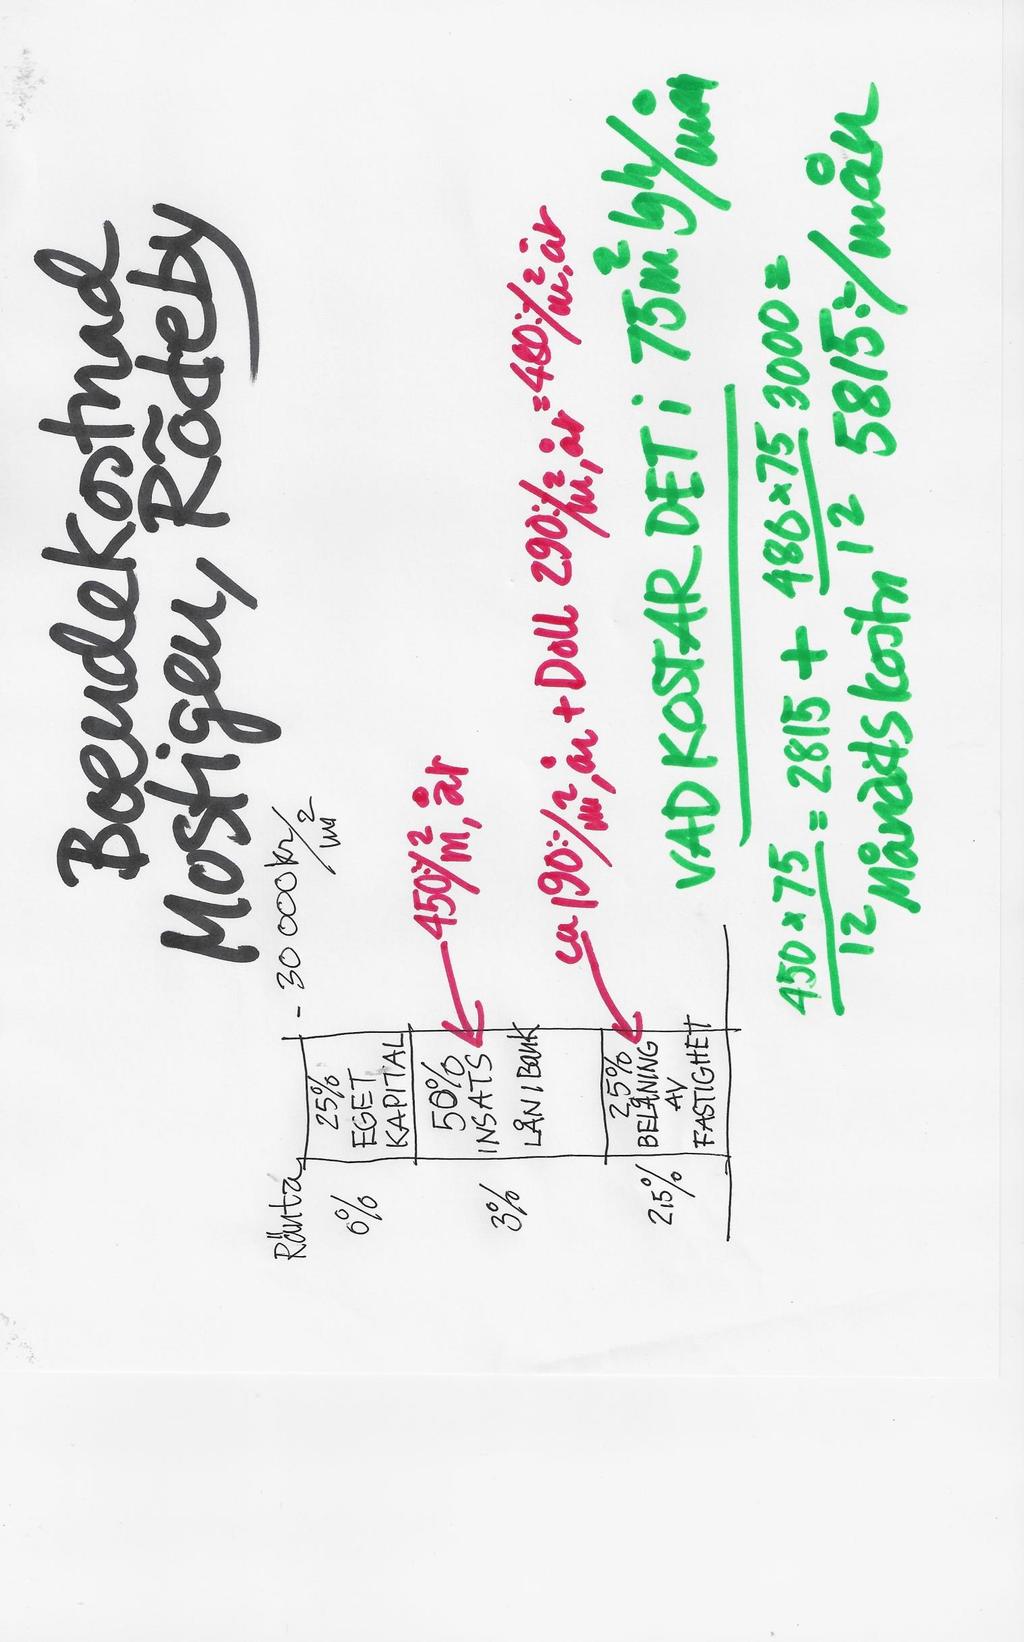 Boendekostnad
Mostigen, Rödeby
Ränta
- 30 000 kr/m2
0%
25%
EGET
KAPITAL
3%
50%
INSATS
LÅN I BANK
450:-/m2, år
2,5%
25%
BELÅNING
AV
FASTIGHET
ca 190:-/m2, år + Doll 290:-/m2, år = 480:-/m2, år
VAD KOSTAR DET i 75m2 lgh/mån
450 x 75 / 12 = 2815 + 480 x 75 / 12 3000 =
Månadskostn 5815:-/mån